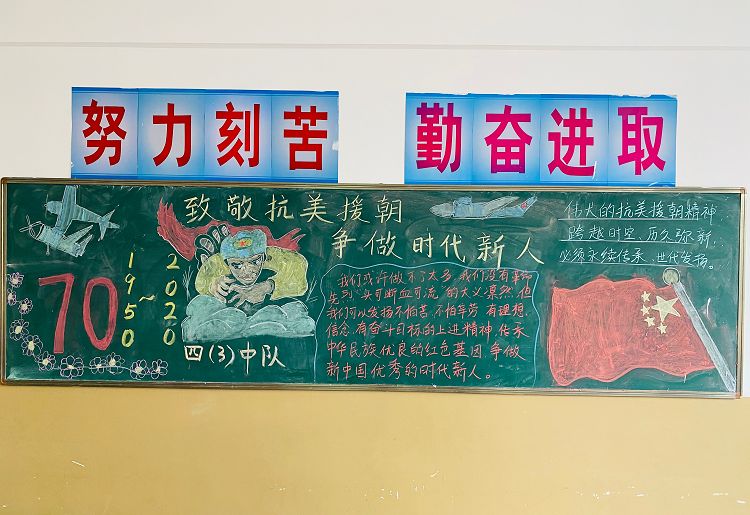 努力刻苦
勤奋进取
致敬抗美援朝
争做时代新人
70
1950~2020
四(3)中队
我们或许做不了太多,我们没有革命
先烈“头可断血可流”的大义凛然,但
我们可以发扬不怕苦、不怕牢劳 有理想、
信念、有奋斗目标的上进精神 传承
中华民族优良的红色基因,争做
新中国优秀的时代新人。
伟大的抗美援朝精神
跨越时空、历久弥新,
必须永续传承、世代发扬。